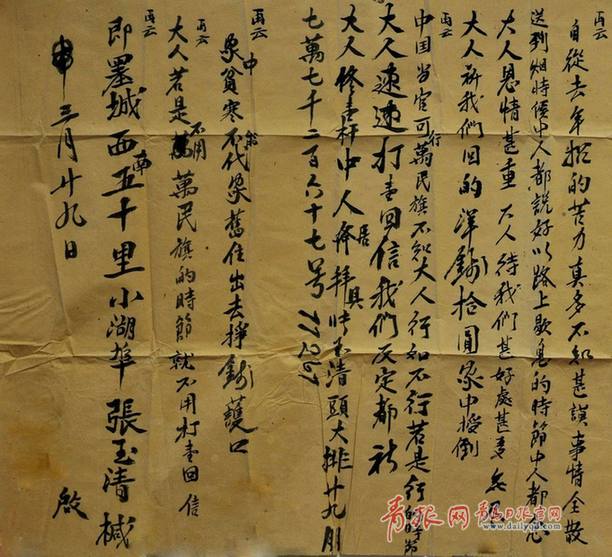 再云
自從去年招的苦力真多不知甚誤事情全散
送到烟時價中人都說好以路上歇息的時節中人都念
大人恩情甚重大人待我們甚好處甚意
大人新我們回的洋錢拾圓家中接倒
再云
中国当官可行萬民旗不知大人行如不行若是行
大人速速打壹回信我們反定都
大人修壹杆中人
七萬七千二百六十七号77267
再云
象中貧寒不代象舊住出去掙錢護口
再云
大人若是不用萬萬民旗的時節就不用打壹回信
即墨城西南五十里小湖埠張玉清椷
啟
申三月廿九日
青报网
www.dailyqd.com